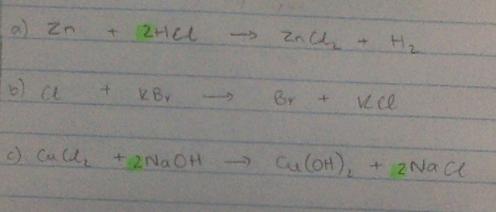 a) Zn + 2HCl → ZnCl₂ + H₂
b) Cl + KBr → Br + KCl
c) CuCl₂ + 2NaOH → Cu(OH)₂ + 2NaCl